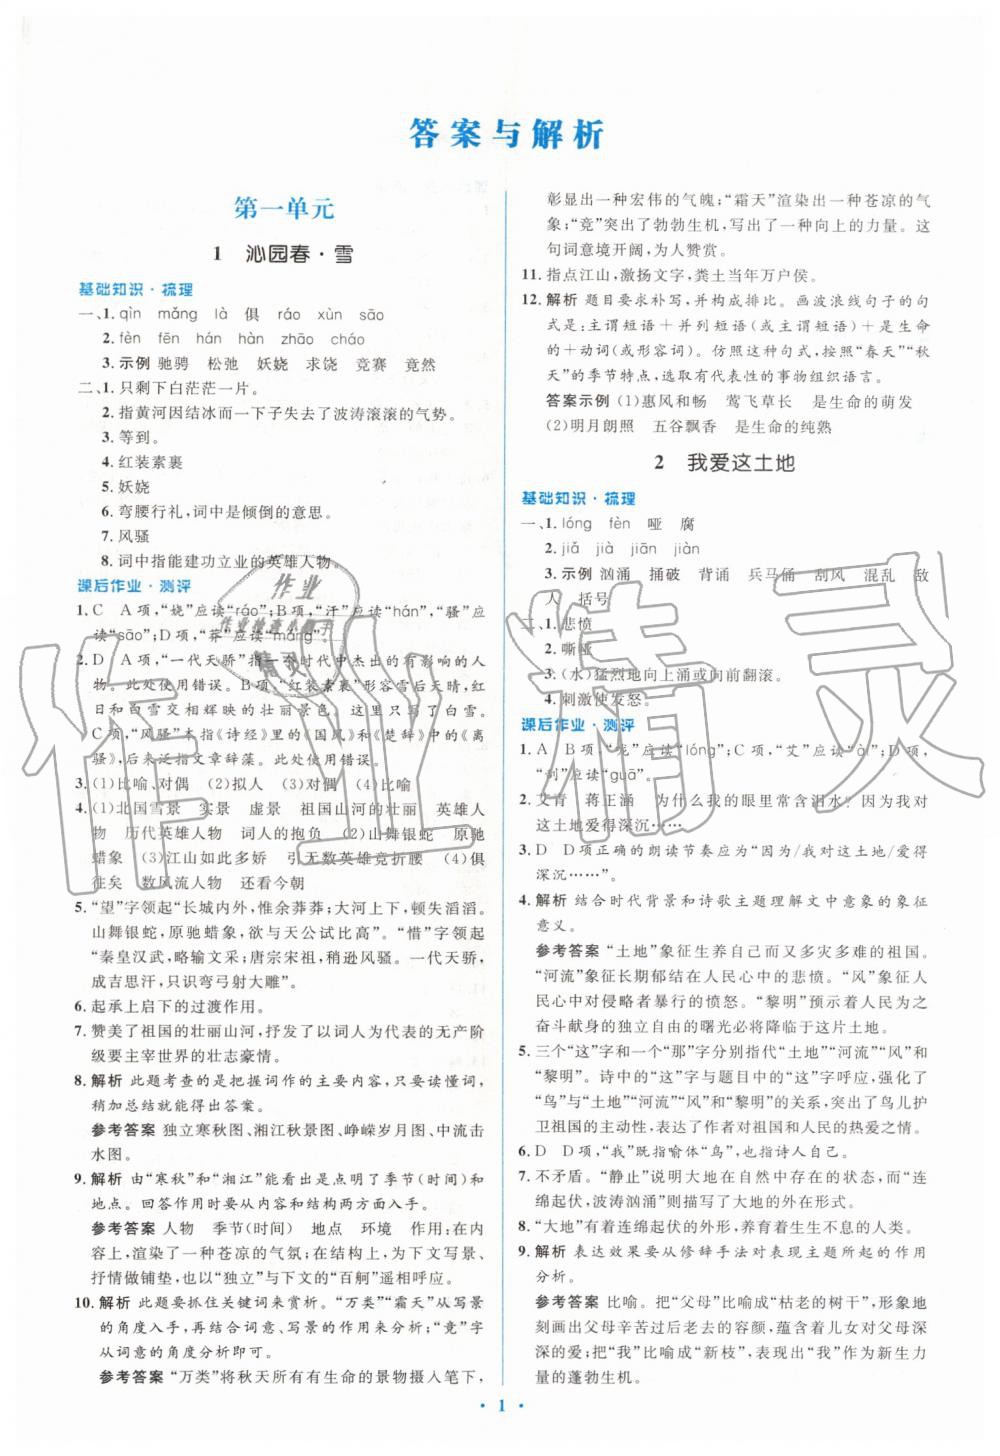 答案与解析
第一单元
1 沁园春·雪
基础知识·梳理
一、1. qìn mǎng là 俱 ráo xùn sāo
2. fèn fēn hán hàn zhāo cháo
3. 示例 驰骋 松弛 妖娆 求饶 竞赛 竟然
二、1. 只剩下白茫茫一片。
2. 指黄河因结冰而一下子失去了波涛滚滚的气势。
3. 等到。
4. 红装素裹
5. 妖娆
6. 弯腰行礼,词中是倾倒的意思。
7. 风骚
8. 词中指能建功立业的英雄人物。
课后作业·测评
1. C A项,“娆”应读“ráo”;B项,“汗”应读“hán”,“骚”应
读“sāo”;D项,“莽”应读“mǎng”。
2. D A项,“一代天骄”指一个时代中杰出的有影响的人
物。此处使用错误。B项,“红装素裹”形容雪后天晴,红
日和白雪交相辉映的壮丽景色。这里只写了白雪。
C项,“风骚”本指《诗经》里的《国风》和《楚辞》中的《离
骚》,后来泛指文章辞藻。此处使用错误。
3. (1)比喻、对偶 (2)拟人 (3)对偶 (4)比喻
4. (1)北国雪景 实景 虚景 祖国山河的壮丽 英雄人
物 历代英雄人物 词人的抱负 (2)山舞银蛇 原驰
蜡象 (3)江山如此多娇 引无数英雄竞折腰 (4)俱
往矣 数风流人物 还看今朝
5. “望”字领起“长城内外,惟余莽莽;大河上下,顿失滔滔。
山舞银蛇,原驰蜡象,欲与天公试比高”。“惜”字领起
“秦皇汉武,略输文采;唐宗宋祖,稍逊风骚。一代天骄,
成吉思汗,只识弯弓射大雕”。
6. 起承上启下的过渡作用。
7. 赞美了祖国的壮丽山河,抒发了以词人为代表的无产阶
级要主宰世界的壮志豪情。
8. 解析 此题考查的是把握词作的主要画面,只要读懂词,
稍加总结就能得出答案。
参考答案 独立寒秋图、湘江秋景图、峥嵘岁月图、中流击
水图。
9. 解析 由“寒秋”和“湘江”能看出是点明了季节(时间)和
地点。回答作用时要从内容和结构两方面入手。
参考答案 人物 季节(时间) 地点 环境 作用:在内
容上,渲染了一种苍凉的气氛;在结构上,为下文写景、
抒情做铺垫,也以“独立”与下文的“百舸”遥相呼应。
10. 解析 此题要抓住关键词来赏析。“万类”“霜天”从写景
的角度入手,再结合词意、写景的作用来分析;“竞”字
从词意的角度分析即可。
参考答案 “万类”将秋天所有有生命的景物摄入笔下,
彰显出一种宏伟的气魄;“霜天”渲染出一种苍凉的气
象;“竞”突出了勃勃生机,写出了一种向上的力量。这
句词意境开阔,为人赞赏。
11. 指点江山,激扬文字,粪土当年万户侯。
12. 解析 题目要求补写,并构成排比。画波浪线句子的句
式是:主谓短语+并列短语(或主谓短语)+是生命
的+动词(或形容词)。仿照这种句式,按照“春天”“秋
天”的季节特点,选取有代表性的事物组织语言。
答案示例 (1)惠风和畅 莺飞草长 是生命的萌发
(2)明月朗照 五谷飘香 是生命的纯熟
2 我爱这土地
基础知识·梳理
一、1. lóng fèn 哑 腐
2. jiǎ jià jiān jiàn
3. 示例 汹涌 捅破 背诵 兵马俑 刮风 混乱 敌
人 括号
二、1. 悲愤
2. 嘶哑
3. (水)猛烈地向上涌或向前翻滚。
4. 刺激使发怒。
课后作业·测评
1. A B项,“龙”应读“lóng”;C项,“艾”应读“ài”;D项,
“刮”应读“guā”。
2. 艾青 蒋正涵 为什么我的眼里常含泪水?因为我对
这土地爱得深沉……
3. D D项正确的朗读节奏应为“因为/我对这土地/爱得
深沉……”。
4. 解析 结合时代背景和诗歌主题理解文中意象的象征
意义。
参考答案 “土地”象征生养自己而又多灾多难的祖国。
“河流”象征长期郁结在人民心中的悲愤。“风”象征人
民心中对侵略者暴行的愤怒。“黎明”预示着人民为之
奋斗献身的独立自由的曙光必将降临于这片土地。
5. 三个“这”字和一个“那”字分别指代“土地”“河流”“风”和
“黎明”。诗中的“这”字与题目中的“这”字呼应,强化了
“鸟”与“土地”“河流”“风”和“黎明”的关系,突出了鸟儿护
卫祖国的主动性,表达了作者对祖国和人民的热爱之情。
6. D D项,“我”既指喻体“鸟”,也指诗人自己。
7. 不矛盾。“静止”说明大地在自然中存在的状态,而“连
绵起伏,波涛汹涌”则描写了大地的外在形式。
8. “大地”有着连绵起伏的外形,养育着生生不息的人类。
9. 解析 表达效果要从修辞手法对表现主题所起的作用
分析。
参考答案 比喻。把“父母”比喻成“枯老的树干”,形象地
刻画出父母辛苦过后老去的容颜,蕴含着儿女对父母深
深的爱;把“我”比喻成“新枝”,表现出“我”作为新生力
量的蓬勃生机。
· 1 ·
作业精灵
作业
作业检查小助手
精灵